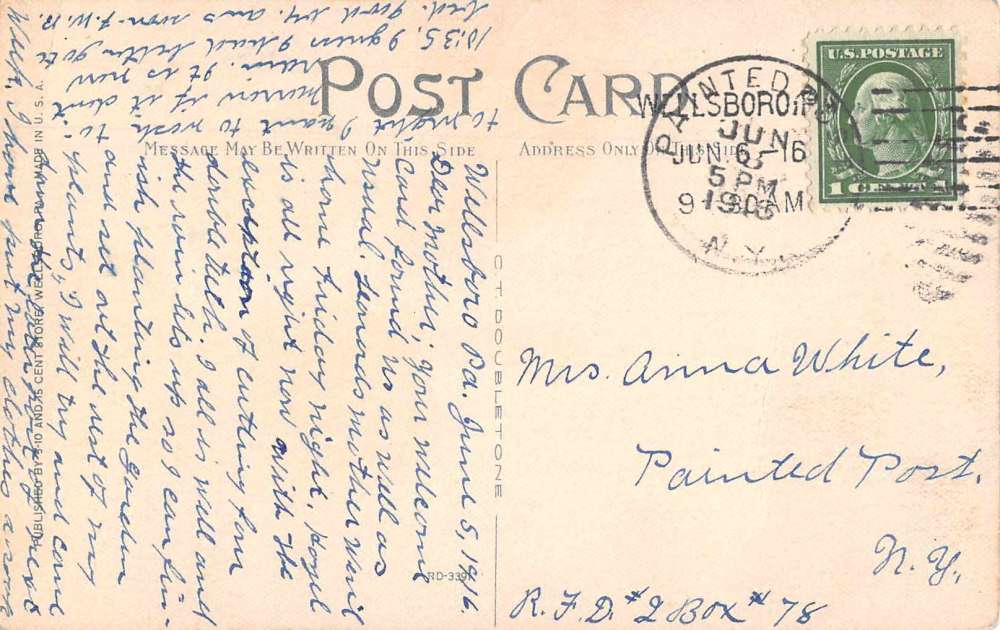 POST CARD
MESSAGE MAY BE WRITTEN ON THIS SIDE
ADDRESS ONLY ON THIS SIDE
U.S. POSTAGE
1 CENT 1
PAINTED POST
JUN
6
5 PM
1916
N.Y.
WELLSBORO
JUN 6 16
9 30 AM
Mrs. Anna White,
Painted Post,
N. Y.,
R. F. D. #2 Box #78
C T DOUBLETONE
RD-339
PUBLISHED BY 5-10 AND 15 CENT STORE, WELLSBORO, MADE IN U.S.A.
Wellsboro Pa. June 5, 1916.
Dear Mother; Your welcome
card found us as well as
usual. mother went
home Friday night.
is all right now with the
exception of cutting four
double teeth. I all is well and
the rain lets up so I can fin-
ish planting the garden
and set out the rest of my
plants, I will try and come
down the latter part of next
Well, I have put my clothes asoak
to night I want to wash to-
morrow if it dont
rain. It is now
10:35. I guess I had better go to
bed. Good N4. ans soon F. W. B.